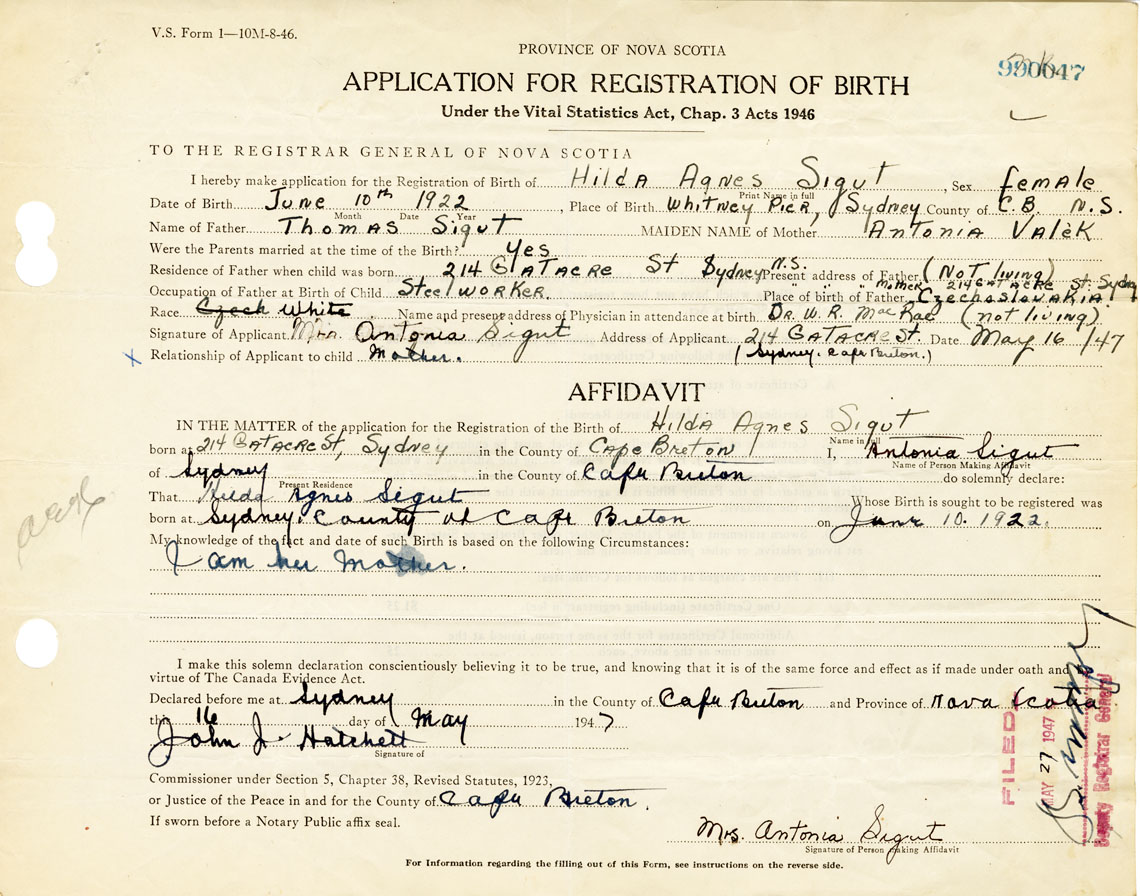 V.S. Form 1—10M-8-46.
PROVINCE OF NOVA SCOTIA
990047
APPLICATION FOR REGISTRATION OF BIRTH
Under the Vital Statistics Act, Chap. 3 Acts 1946
TO THE REGISTRAR GENERAL OF NOVA SCOTIA
I hereby make application for the Registration of Birth of Hilda Agnes Sigut, Sex female
Print Name in full
Date of Birth June 10th 1922, Place of Birth Whitney Pier, Sydney County of C.B. N.S.
Month Date Year
Name of Father Thomas Sigut MAIDEN NAME of Mother Antonia Valĕk
Were the Parents married at the time of the Birth? Yes
Residence of Father when child was born 214 Gatacre St Sydney N.S. Present address of Father (Not living)
" " " Mother 214 Gatacre St. Sydney
Occupation of Father at Birth of Child Steelworker. Place of birth of Father Czechoslovakia
Race Czech White Name and present address of Physician in attendance at birth Dr. W. R. MacRae (not living)
Signature of Applicant Mrs. Antonia Sigut Address of Applicant 214 Gatacre St. Date May 16/47
x Relationship of Applicant to child Mother. (Sydney. Cape Breton.)
AFFIDAVIT
IN THE MATTER of the application for the Registration of the Birth of Hilda Agnes Sigut
Name in full
born at 214 Gatacre St, Sydney in the County of Cape Breton I, Antonia Sigut
Name of Person Making Affidavit
of Sydney in the County of Cape Breton do solemnly declare:
Present Residence
That Hilda Agnes Sigut Whose Birth is sought to be registered was
born at Sydney. County of Cape Breton on June 10. 1922.
My knowledge of the fact and date of such Birth is based on the following Circumstances:
I am her Mother.
I make this solemn declaration conscientiously believing it to be true, and knowing that it is of the same force and effect as if made under oath and
virtue of The Canada Evidence Act.
Declared before me at Sydney in the County of Cape Breton and Province of Nova Scotia
this 16 day of May 1947
John J. Hatchett
Signature of
Commissioner under Section 5, Chapter 38, Revised Statutes, 1923,
or Justice of the Peace in and for the County of Cape Breton.
If sworn before a Notary Public affix seal.
Mrs. Antonia Sigut
Signature of Person making Affidavit
For Information regarding the filling out of this Form, see instructions on the reverse side.
FILED
MAY 27 1947
Deputy Registrar General